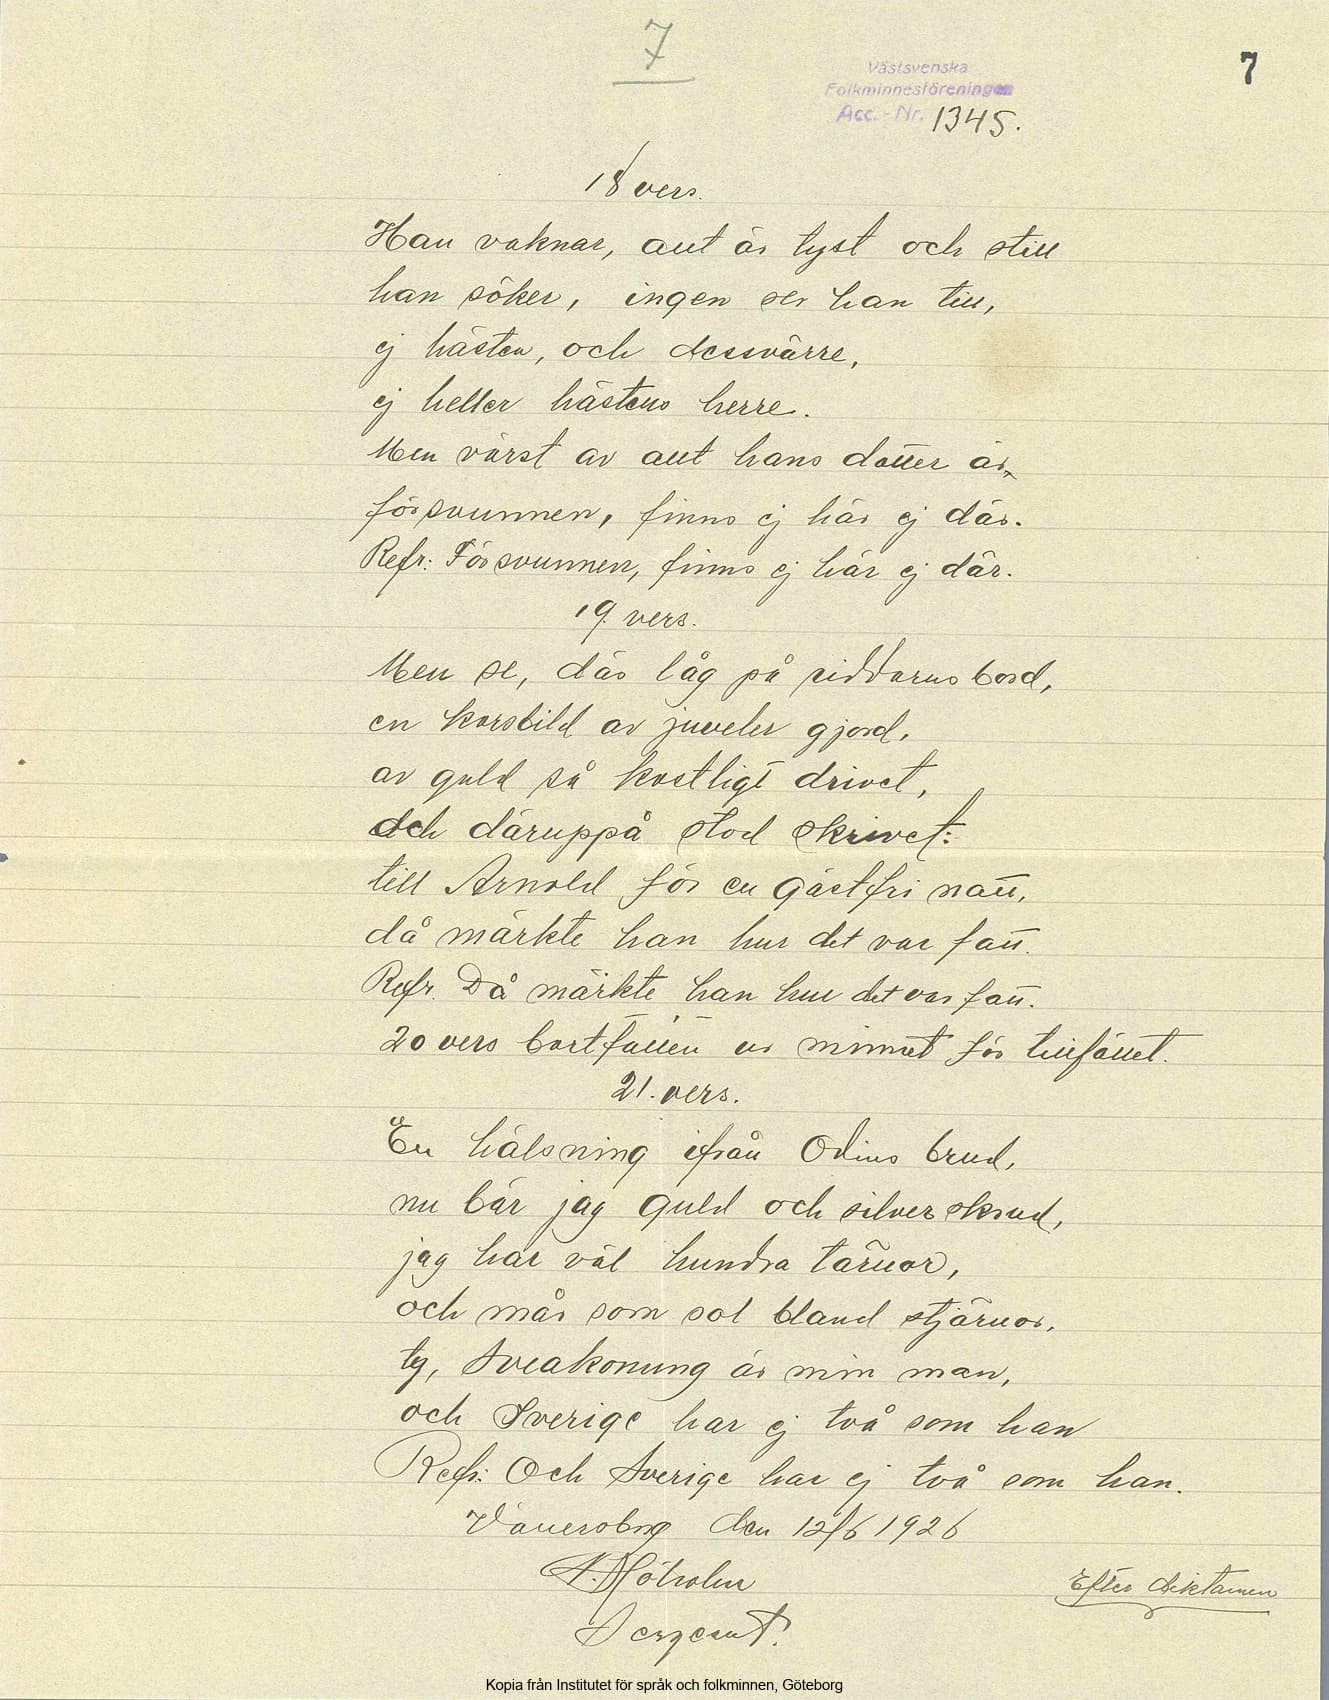 7
7
Västsvenska
Folkminnesföreningen
Acc.-Nr. 1345.
18 vers.
Han vaknar, allt är tyst och still
han söker, ingen ser han till,
ej hästen, och dessvärre,
ej heller hästens herre.
Men värst av allt hans dotter är
försvunnen, finns ej här ej där.
Refr: Försvunnen, finns ej här ej där.
19. vers.
Men se, där låg på riddarns bord,
en korsbild av juveler gjord,
av guld så kostligt drivet,
och däruppå stod skrivet:
till Arnold för en gästfri natt,
då märkte han hur det var fatt.
Refr. Då märkte han hur det var fatt.
20 vers bortfallen ur minnet för tillfället.
21. vers.
En hälsning ifrån Odins brud,
nu bär jag guld och silverskrud,
jag har väl hundra tärnor,
och mår som sol bland stjärnor,
ty, Sveakonung är min man,
och Sverige har ej två som han
Refr: Och Sverige har ej två som han.
Vänersborg den 12/6 1926
Sergeant.
Efter diktamen
Kopia från Institutet för språk och folkminnen, Göteborg